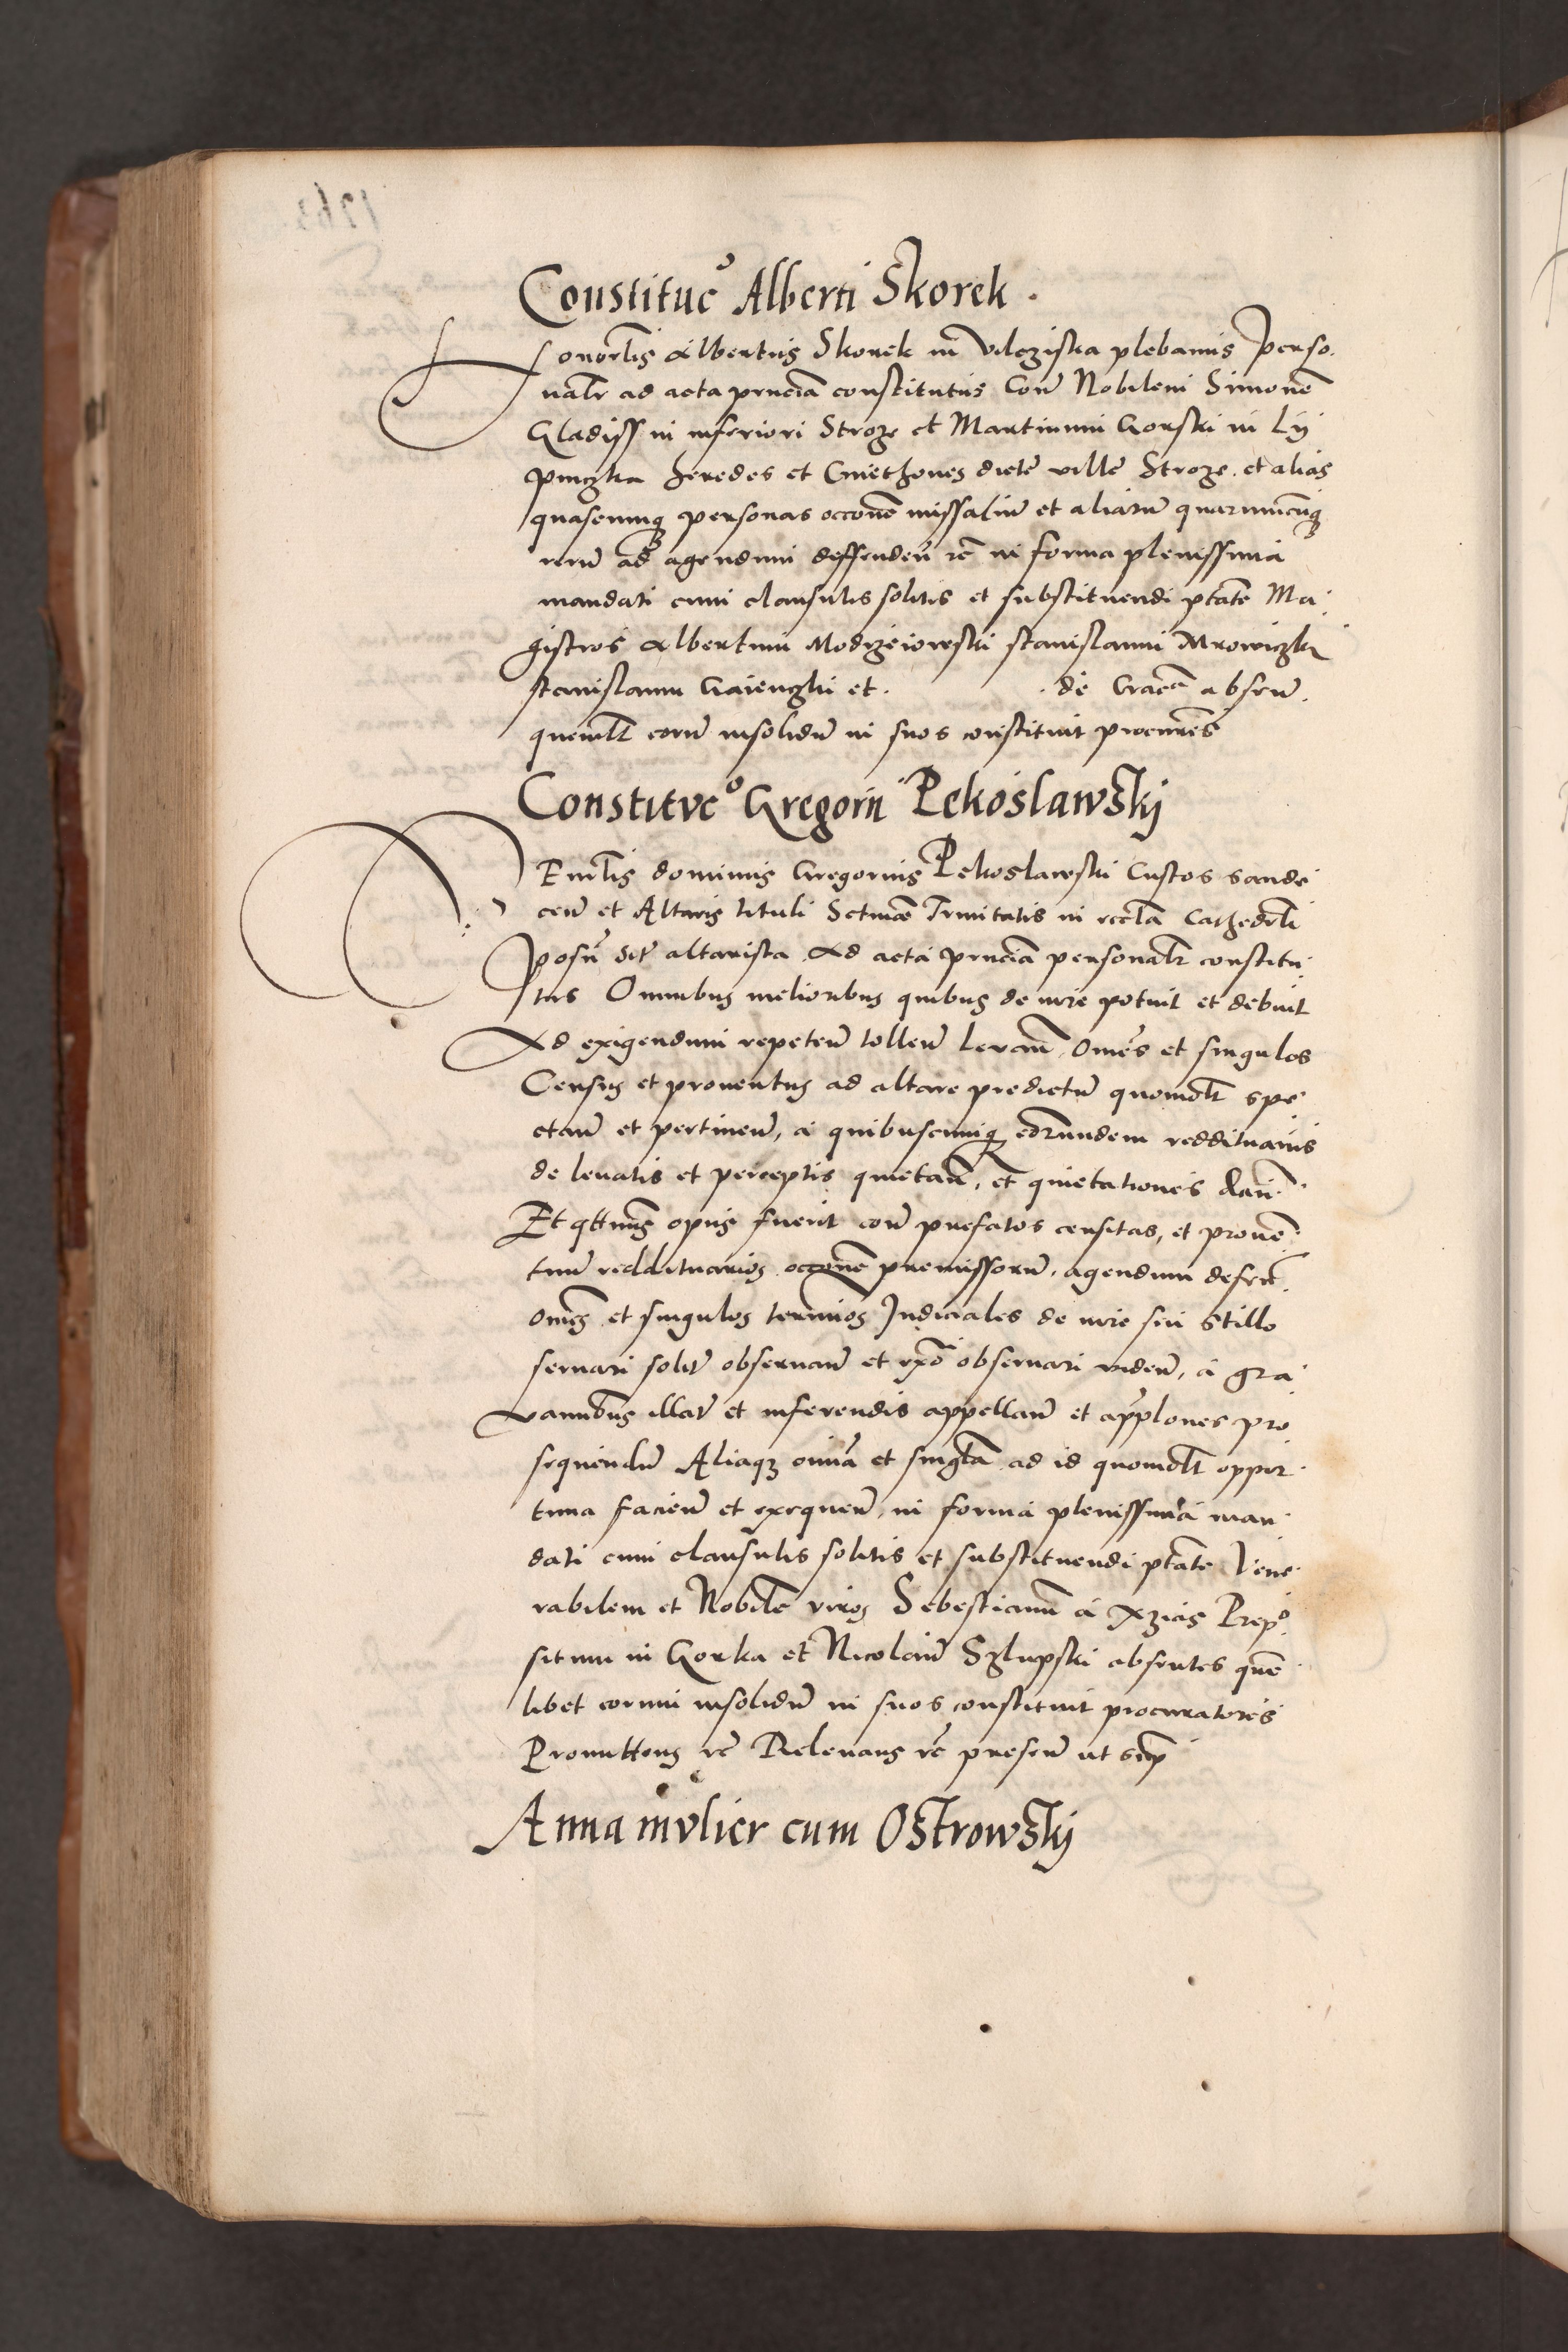 Constituc͠o Alberti Skorek .
Honorl̃is Albertus Skorek in Vilcziska plebanus Perso.
nalr̃ ad acta prñcia constitutus Con͠ Nobilem Simonem͠
Gladiss in inferiori Stroze et Martinum Gorski in Ly
pniczka heredes et Cmethones dicte ville Stroze. et alias
quascunq personas occōne missaliu͠ et aliaru͠ quarumcu͠q
reru͠ ad agendum deffenden͠ rc͠ in forma plenissima
mandati cum clausulis solitis et substituendi ptate͠ Ma
gistros Albertum Modrzeiowski Stanislaum Mrowiczki
Stanislaum Gaienczki et . . de Craca͠ absen͠.
quemlt͠ eoru͠ insolidu͠ in suos constituit procures͠
Constituc͠o Gregorii Pekoslawskij
VEnerl̃is dominus Gregorius Pekoslawski Custos Sande
cen͠ et Altaris tituli Sctme Trinitatis in eccla͠ Cathedrl̃i
Posn͠ sit͠ altarista Ad acta prñcia personalr̃ constitu
tus Omnibus melioribus quibus de iure potuit et debuit
Ad exigendum repeten͠ tollen͠ levan͠ omes͠ et singulos
Census et proventus ad altare predictu͠ quomolt͠ spe
ctan͠ et pertinen͠, a quibuscunq eorundem reddituariis
de levatis et perceptis quietan͠, et quietationes dan͠
Et qtinus͠ opus fuerit con͠ prefatos censitas, et proven͠
tuu͠ reddituarios occōne premissoru͠, agendum defen͠
omes͠ et singulos terminos Judiciales de iure seu stillo
servari solit͠ observan͠ et expo͠ observari viden͠, a gra
vaminibus͠ illat͠ et inferendis appellan͠ et applones͠ pro
sequendu͠ Aliaq omia͠ et singla͠ ad id quomolt͠ oppor
tuna facien͠ et exequen͠, in forma plenissima man
dati cum clausulis solitis et substituendi ptate͠ Vene
rabilem et Nobile͠ viros Sebestianu͠ a Xzias Prepo
situm in Gorka et Nicolau͠ Szlupski absentes que͠
libet eorum insolidu͠ in suos constituit procuratores
Promittens rc͠ Relevans rc͠ presen͠ ut sup͠
Anna mulier cum Ostrowskij